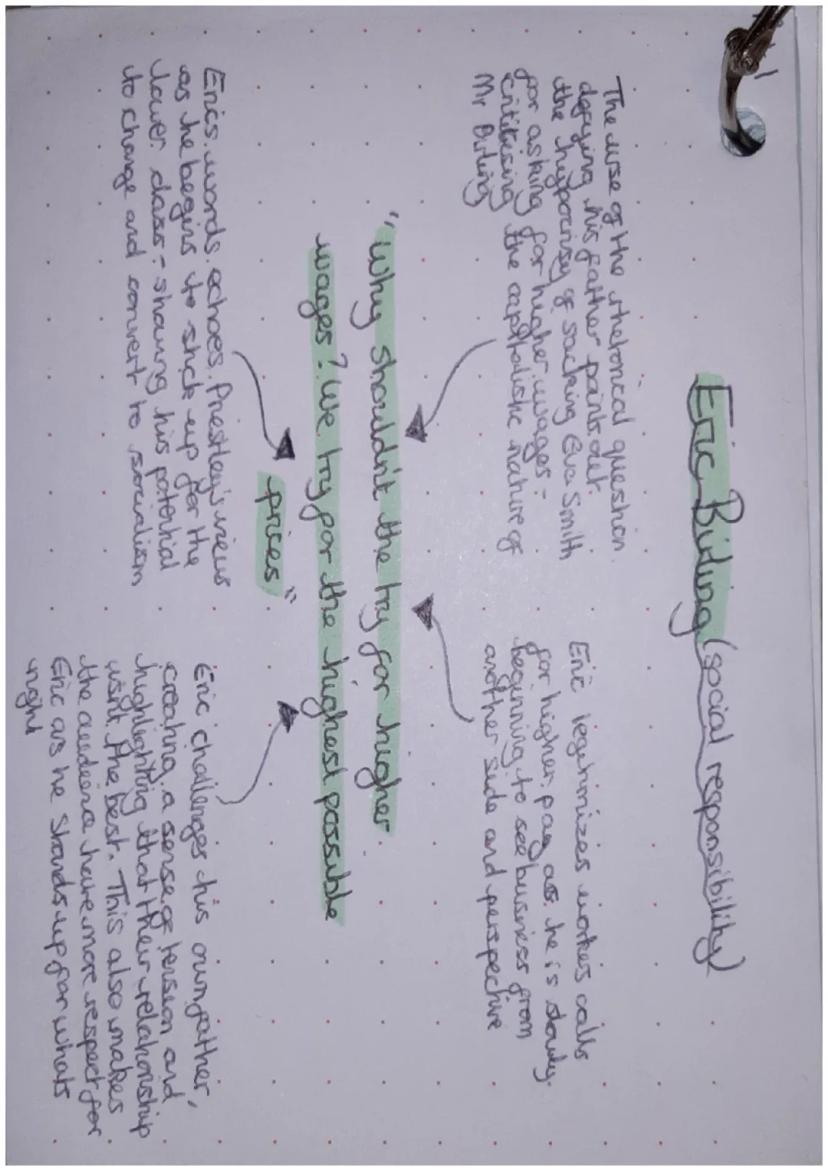 Eric Birling (social responsibility)
The use of the rhetorical question
defying his father points out
the hypocrisy of sacking Eva Smith
for asking for higher wages -
critiscing the capitalistic nature of
Mr Birling
Eric legitimizes workes calls
for higher pay as he is slowly
beginning to see business from
another side and perspective
"Why shouldn't the try for higher
wages? We try for the highest possible
prices"
Erics words echoes Priestley's views
as he begins to stick up for the
lower class - showing his potential
to change and convert to socialism
Eric challenges his own father,
creating a sense of tension and
highlighting that their relationship
isn't the best. This also makes
the audience have more respect for
Eric as he stands up for whats
right